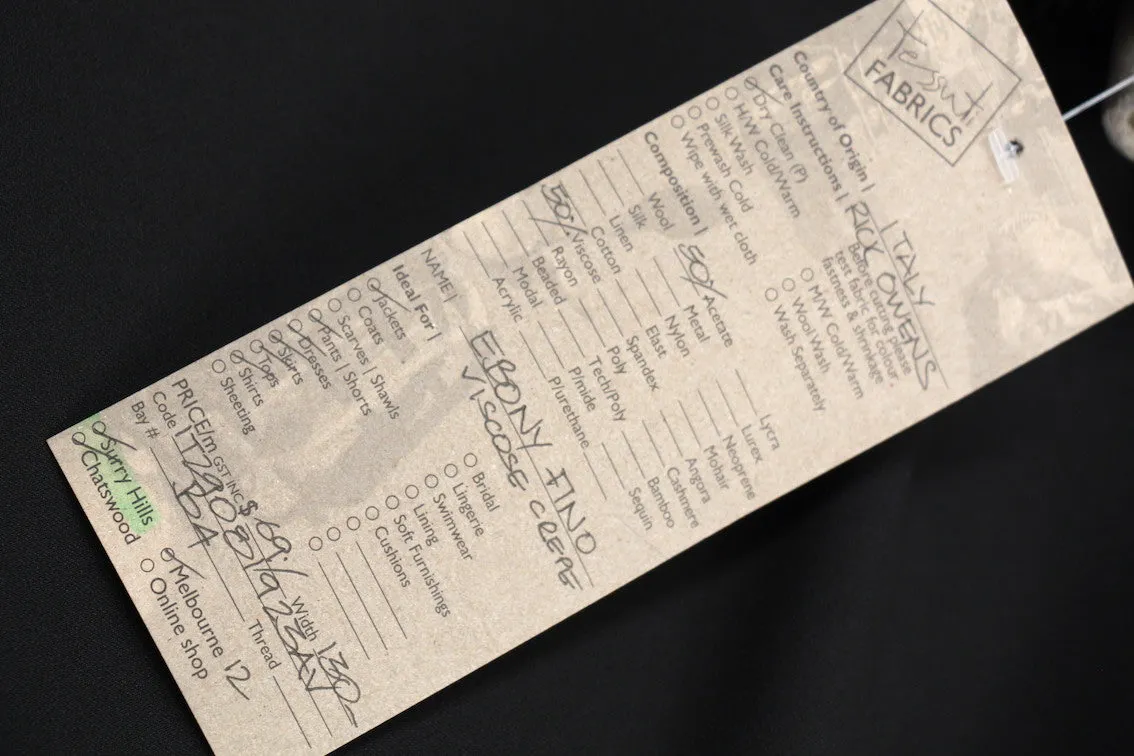 tessuti
FABRICS
Country of Origin | ITALY
Care Instructions | RICK OWENS
Dry Clean (P)
H/W Cold/Warm
Silk Wash
Prewash Cold
Wipe with wet cloth
Before cutting please
test fabric for colour,
fastness & shrinkage
M/W Cold/Warm
Wool Wash
Wash Separately
Composition |
Wool 50% Acetate Lycra
Silk Metal Lurex
Linen Nylon Neoprene
Cotton Elast Mohair
50% Viscose Spandex Angora
Rayon Poly Cashmere
Beaded Tech/Poly Bamboo
Modal P/mide Sequin
Acrylic P/urethane
NAME | EBONY FINO
VISCOSE CREPE
Ideal For |
Jackets Bridal
Coats Lingerie
Scarves | Shawls Swimwear
Pants | Shorts Lining
Dresses Soft Furnishings
Skirts Cushions
Tops
Shirts
Sheeting
PRICE/m GST INC $ 69.- Width 130-
Code
Bay # BA Thread
Surry Hills Melbourne 12
Chatswood Online shop